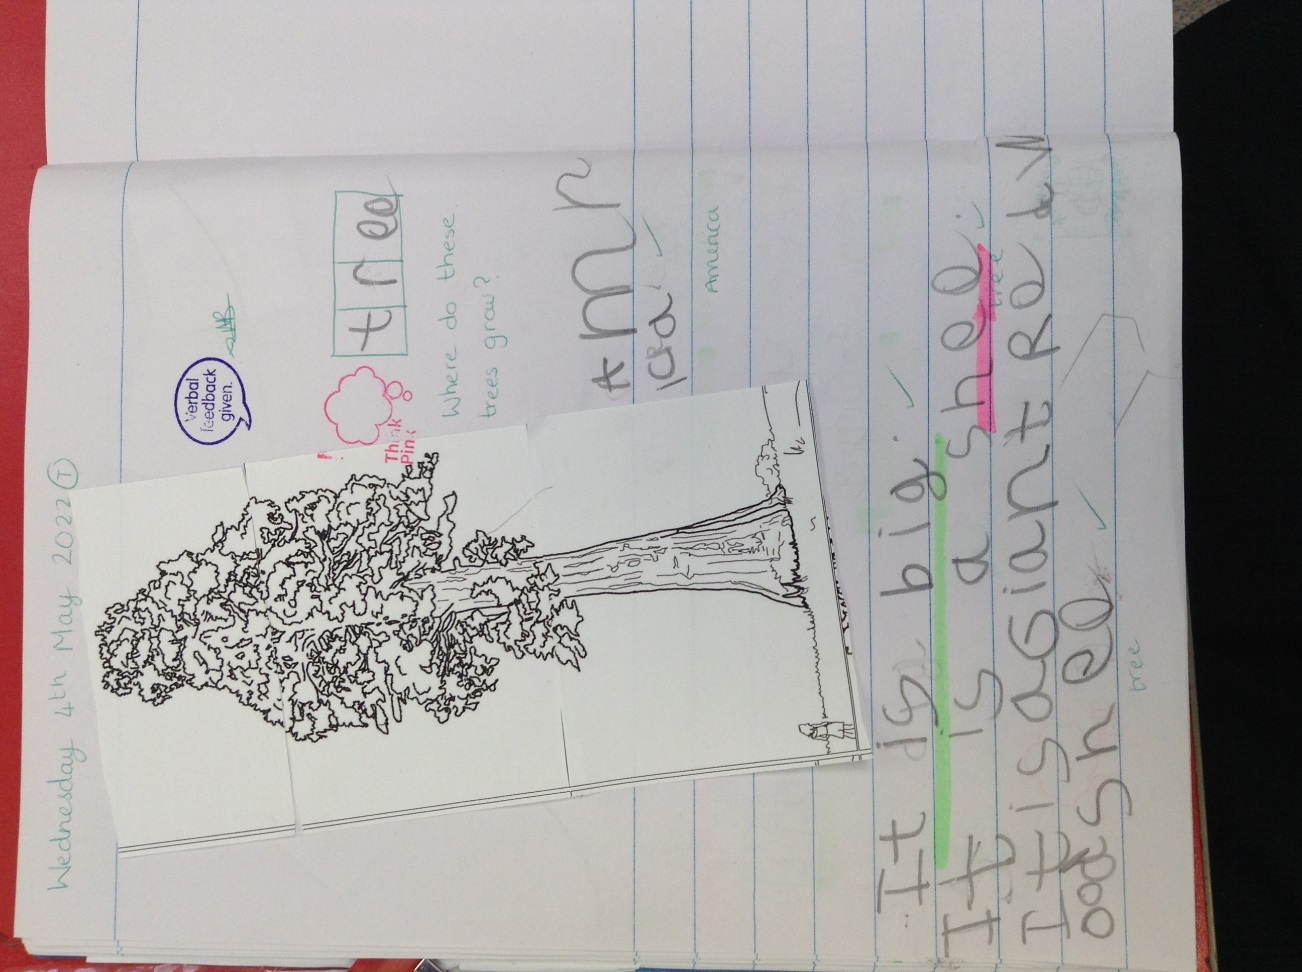 Wednesday 4th May 2022 I
Verbal
feedback
given.
Think
Pin
t r ee
Where do these
trees grow?
Amr
ica
America
It is big.
It is a shee.
tree
It is a Giant Re dw
ood shee
tree